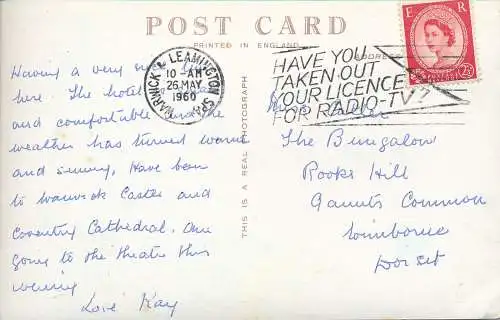 POST CARD
PRINTED IN ENGLAND
Having a very
here. The hotel
and comfortable and the
weather has turned warm
and sunny, Have been
to Warwick Castle and
Coventry Cathedral. Am
going to the theatre this
evening
Love Kay
WARWICK & LEAMINGTON SPA
10-AM
26 MAY
1960
THIS IS A REAL PHOTOGRAPH
ADDRESS
HAVE YOU
TAKEN OUT
YOUR LICENCE
FOR RADIO-TV?
E R
POSTAGE REVENUE
2½D
The Bungalow
Rooks Hill
Gaunts Common
Wimborne
Dorset